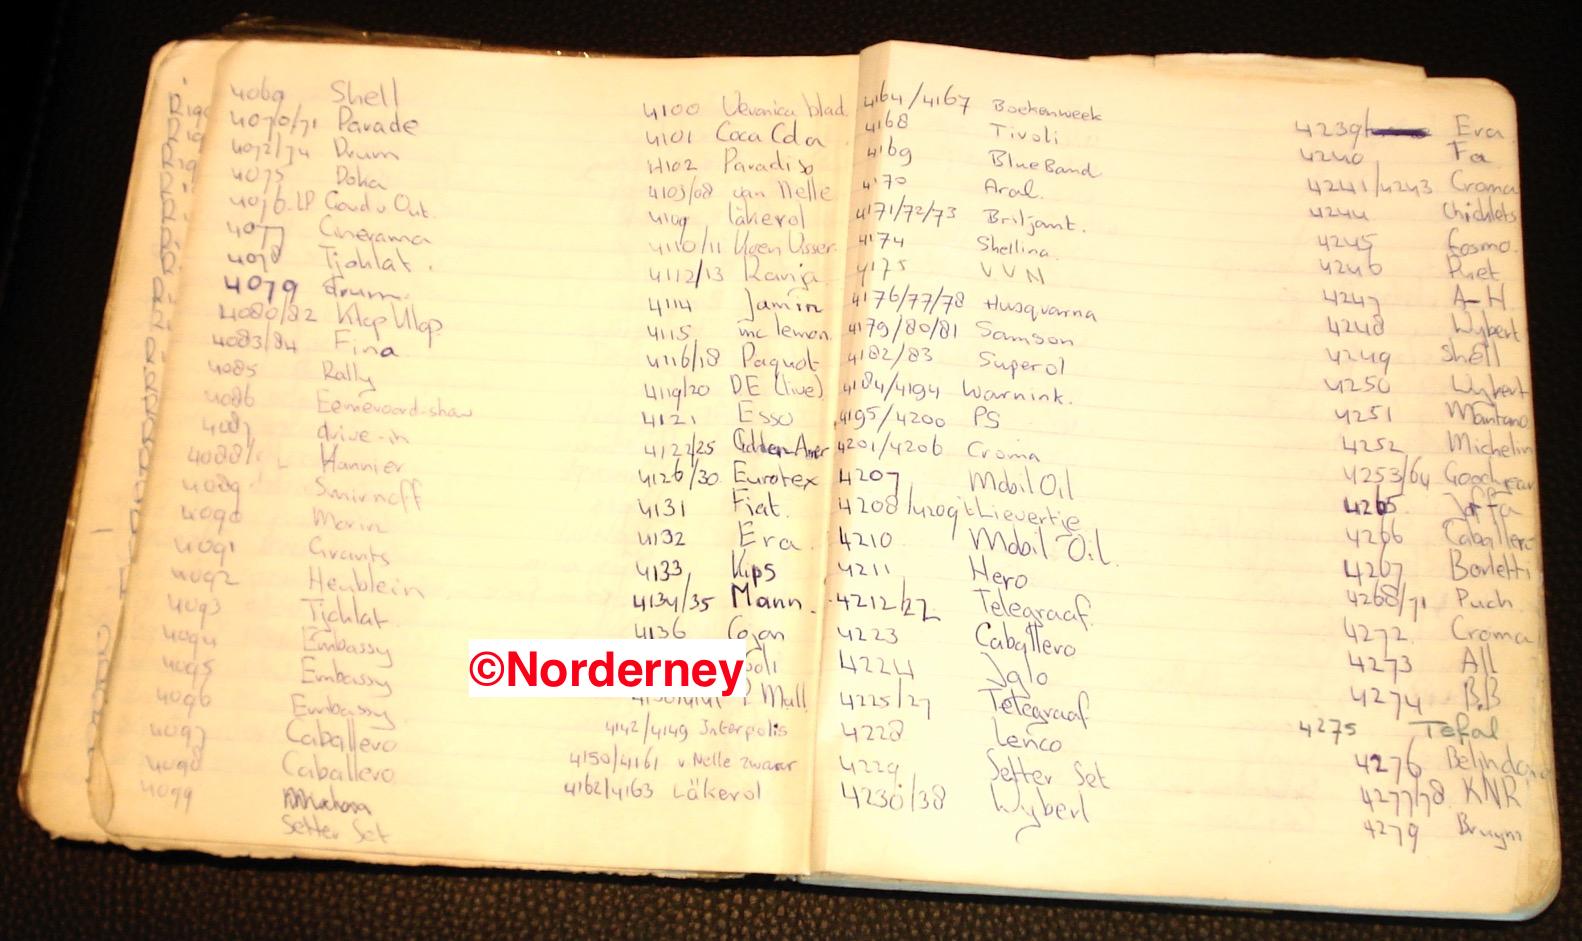 4069 Shell
4070/71 Parade
4072/74 Drum
4075 Doka
4076 LP Goud v Out.
4077 Cinerama
4078 Tjoklat.
4079 drum.
4080/82 Klop Klop
4083/84 Fina
4085 Rally
4086 Eemevoord-show
4087 drive-in
4088 Hannier
4089 Smirnoff
4090 Marin
4091 Grants
4092 Heublein
4093 Tjoklat
4094 Embassy
4095 Embassy
4096 Embassy
4097 Caballero
4098 Caballero
4099
Setter Set
4100 Veronica blad
4101 Coca Cola
4102 Paradiso
4103/08 van Nelle
4109 läkerol
4110/11 Koen Visser
4112/13 Ranja
4114 Jamin
4115 mc lemon
4116/18 Paquot
4119/20 DE (live)
4121 Esso
4122/25 Golden Amer
4126/30 Eurotex
4131 Fiat.
4132 Era
4133 Kips
4134/35 Mann.
4136
Mall
4142/4149 Interpolis
4150/4161 v Nelle zwaar
4162/4163 Läkerol
4164/4167 Boekenweek
4168 Tivoli
4169 BlueBand
4170 Aral.
4171/72/73 Briljant.
4174 Shellina
4175 VVN
4176/77/78 Husqvarna
4179/80/81 Samson
4182/83 Superol
4184/4194 Warnink.
4195/4200 PS
4201/4206 Croma
4207 Mobil Oil
4208/4209 't Lievertje
4210 Mobil Oil.
4211 Hero
4212/22 Telegraaf
4223 Caballero
4224 Jglo
4225/27 Telegraaf
4228 Lenco
4229 Setter Set
4230/38 Wybert
4239 Era
4240 Fa
4241/4243 Croma
4244 Chiclets
4245 Cosmo.
4246
4247 A-H.
4248 Wybert
4249 Shell
4250 Wybert
4251 Mantano
4252 Michelin
4253/64 Goodyear
4265 Jaffa
4266 Caballero
4267 Borletti
4268/71 Puch
4272 Croma
4273 All
4274 B.B
4275 Tefal
4276 Belinda
4277/78 KNR
4279 Bruyn
©Norderney